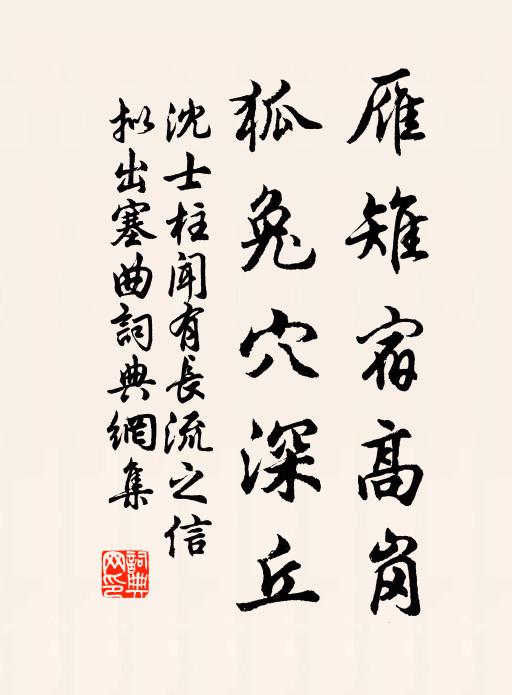 雁雉宿高岗
狐兔穴深丘
沈士柱闻有長流之信
拟出塞曲詞典網集
詞典网印